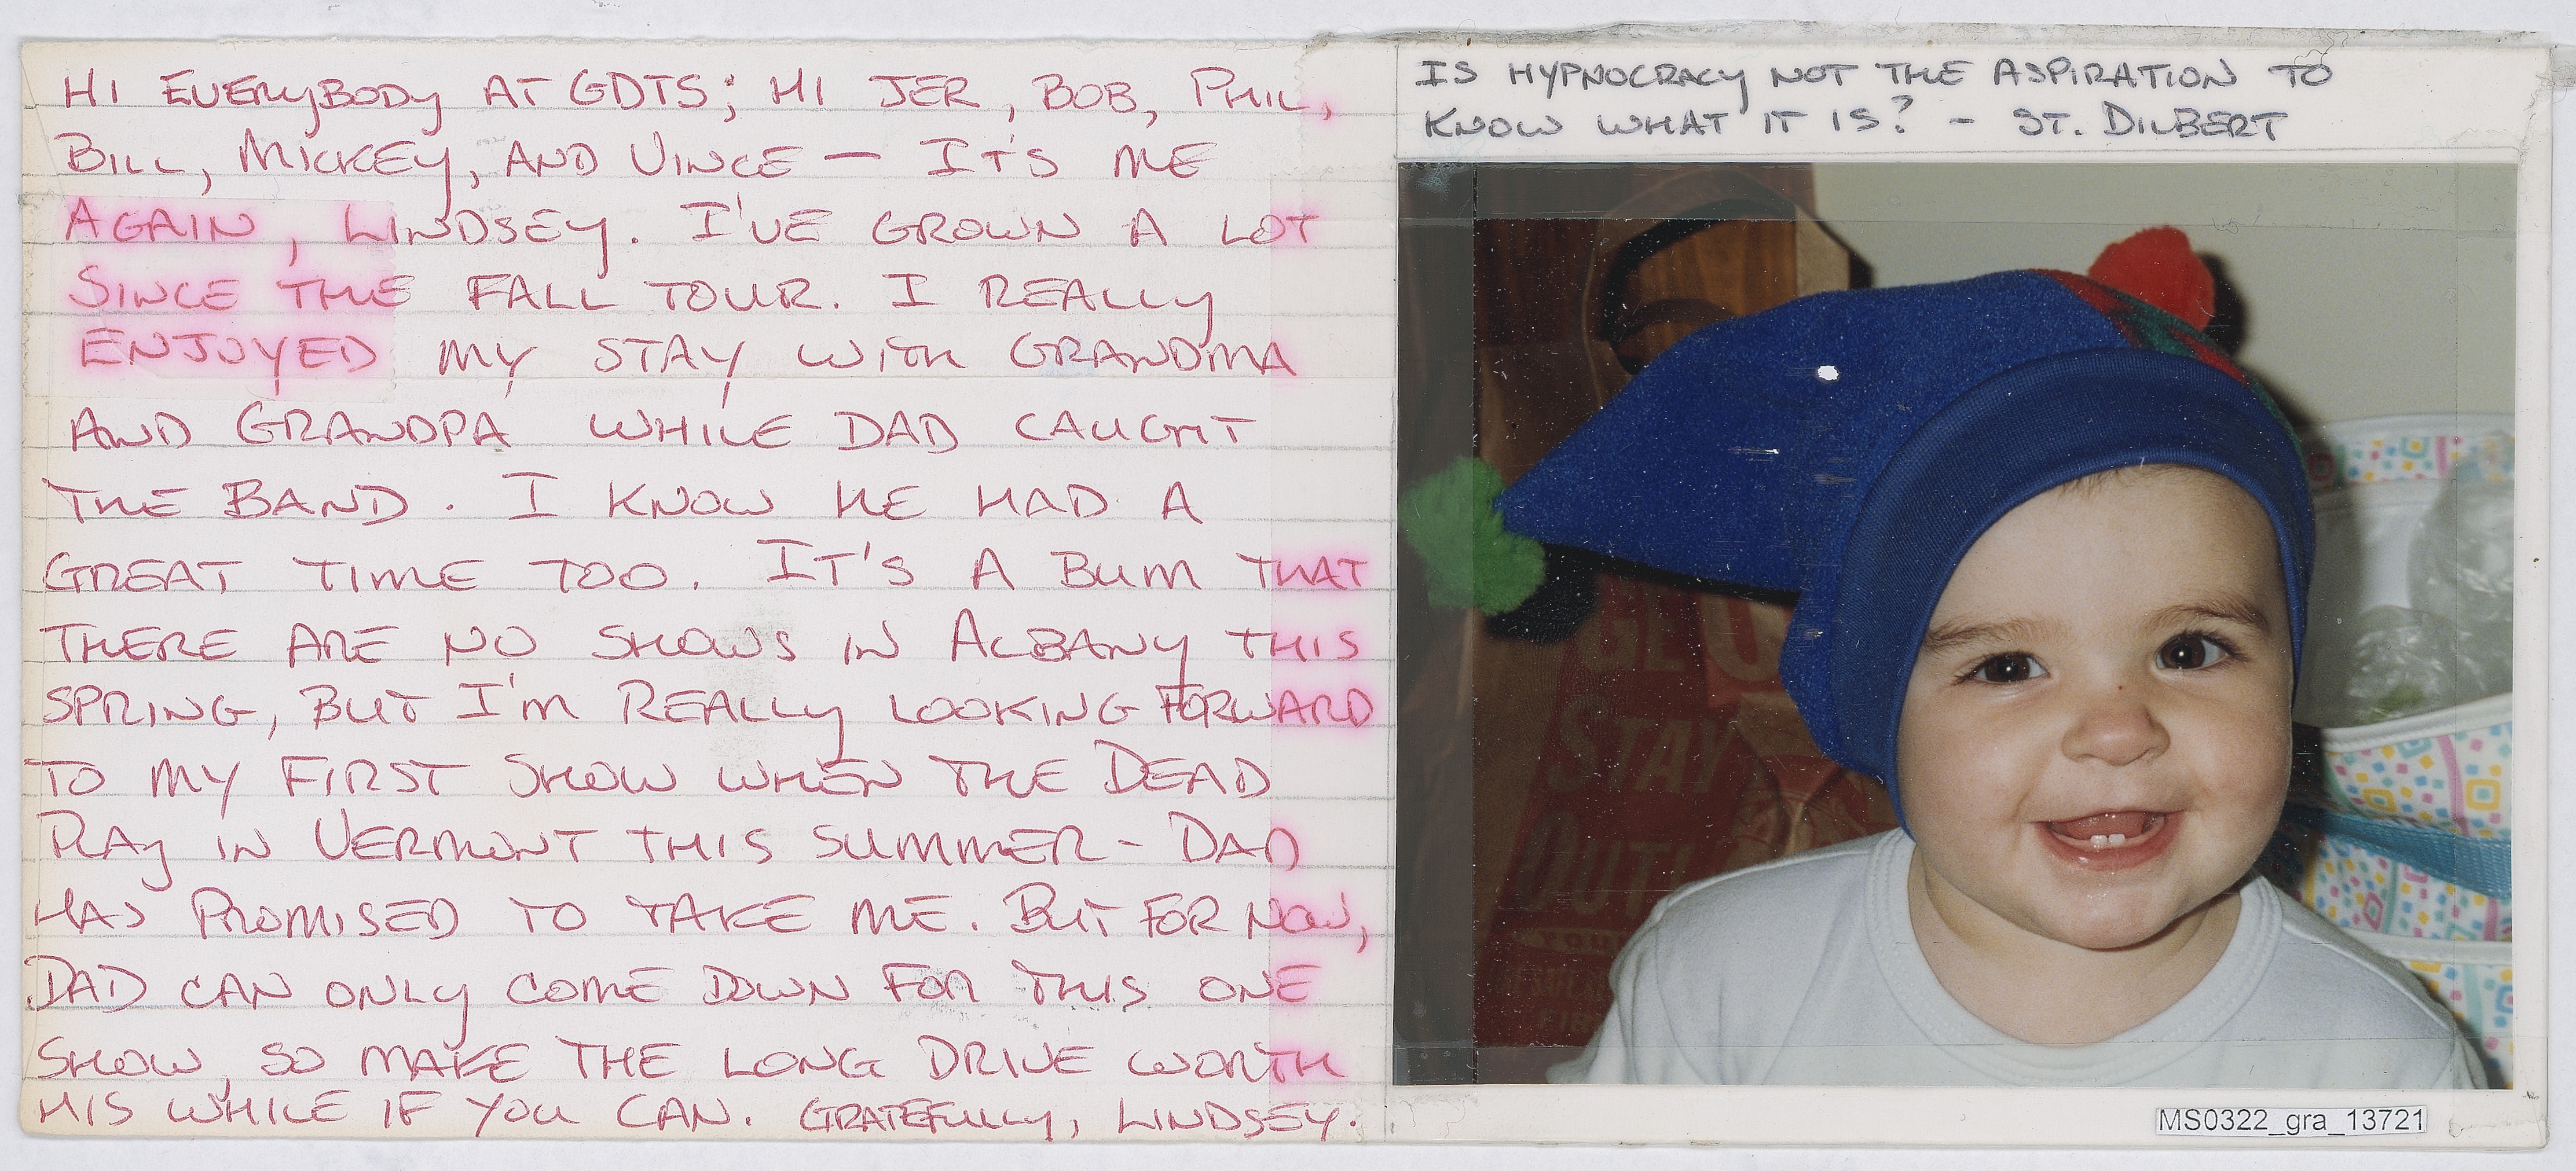 HI EVERYBODY AT GDTS; HI JER, BOB, PHIL,
BILL, MICKEY, AND VINCE — IT'S ME
AGAIN, LINDSEY. I'VE GROWN A LOT
SINCE THE FALL TOUR. I REALLY
ENJOYED MY STAY WITH GRANDMA
AND GRANDPA WHILE DAD CAUGHT
THE BAND. I KNOW HE HAD A
GREAT TIME TOO. IT'S A BUM THAT
THERE ARE NO SHOWS IN ALBANY THIS
SPRING, BUT I'M REALLY LOOKING FORWARD
TO MY FIRST SHOW WHEN THE DEAD
PLAY IN VERMONT THIS SUMMER - DAD
HAS PROMISED TO TAKE ME. BUT FOR NOW,
DAD CAN ONLY COME DOWN FOR THIS ONE
SHOW, SO MAKE THE LONG DRIVE WORTH
HIS WHILE IF YOU CAN. GRATEFULLY, LINDSEY.
IS HYPNOCRACY NOT THE ASPIRATION TO
KNOW WHAT IT IS? - ST. DILBERT
STAY
MS0322_gra_13721